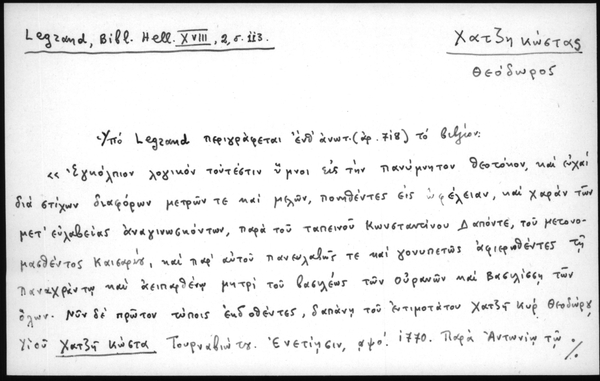 Legrand, Bibl. Hell. XVIII, 2, σ. 113.
Χατζηκώστας
Θεόδωρος
Ὑπό Legrand περιγράφεται ἐνθ' ἀνωτ. (ἀρ. 718) τό βιβλίον:
«Ἐγκόλπιον λογικόν τουτέστιν ὕμνοι εἰς τήν πανύμνητον Θεοτόκον, καί εὐχαί
διά στίχων διαφόρων μετρῶν τε καί μελῶν, πονηθέντες εἰς ὠφέλειαν, καί χαράν τῶν
μετ' εὐλαβείας ἀναγινωσκόντων, παρά τοῦ ταπεινοῦ Κωνσταντίνου Δαπόντε, τοῦ μετονο-
μασθέντος Καισαρίου, καί παρ' αὐτοῦ πανευλαβῶς τε καί γονυπετῶς ἀφιερωθέντες τῇ
Παναχράντῳ καί ἀειπαρθένῳ μητρί τοῦ βασιλέως τῶν Οὐρανῶν καί Βασιλίσσῃ τῶν
ὅλων. Νῦν δέ πρῶτον τύποις ἐκδοθέντες, δαπάνῃ τοῦ ἐντιμοτάτου Χατζῆ Κύρ Θεοδώρου
Υἱοῦ Χατζῆ Κώστα Τουρναβιώτου. Ἐνετίησιν, αψο΄. 1770. Παρά Ἀντωνίῳ τῷ ./.